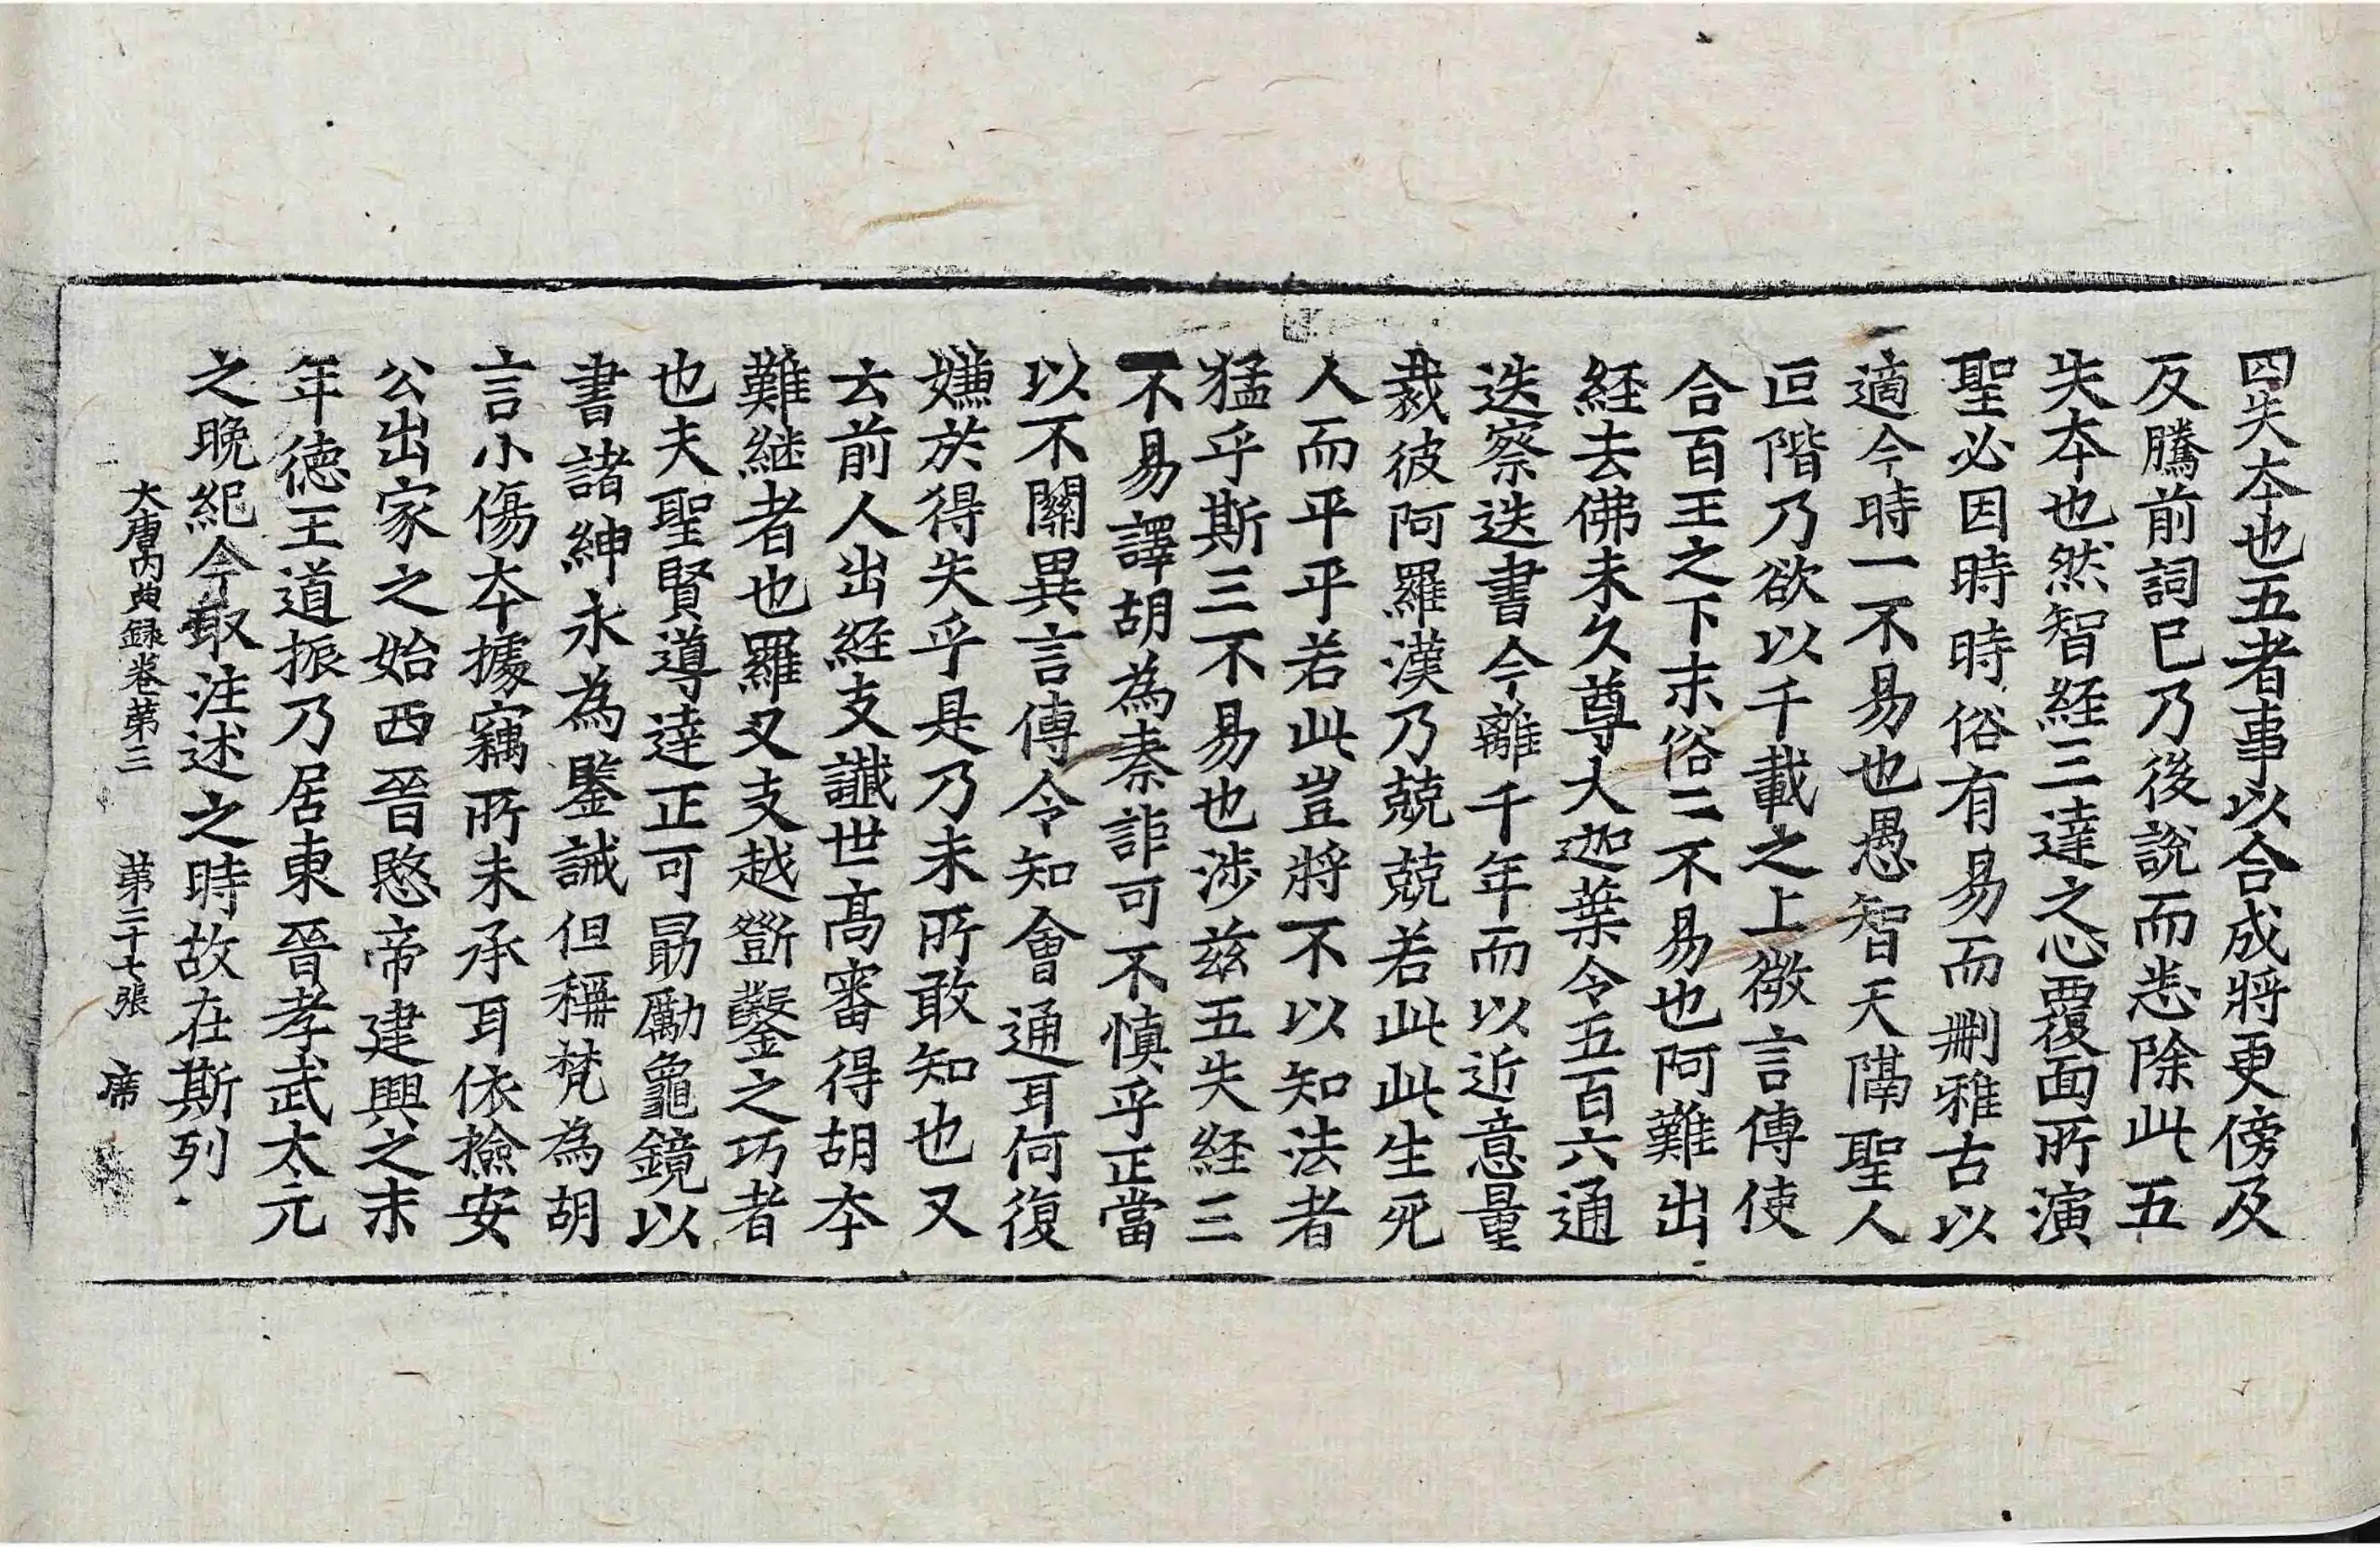 四失夲也五者事以合成將更傍及
反騰前詞已乃後說而悉除此五
失夲也然智経三達之心覆面所演
聖必因時時俗有易而刪雅古以
適今時一不易也愚智天隔聖人
叵階乃欲以千載之上微言傳使
合百王之下末俗二不易也阿難出
経去佛未久尊大迦葉令五百六通
迭察迭書今離千年而以近意量
裁彼阿羅漢乃兢兢若此此生死
人而平平若此豈將不以知法者
猛乎斯三不易也涉茲五失経三
不易譯胡為秦詎可不慎乎正當
以不關異言傳令知會通耳何復
嫌於得失乎是乃未所敢知也又
云前人出経支讖世髙審得胡夲
難継者也羅叉支越斵鑿之巧者
也夫聖賢導達正可勗勵龜鏡以
書諸紳永為鑒誡但稱梵為胡
言小傷夲據竊所未承耳依撿安
公出家之始西晉愍帝建興之末
年徳王道振乃居東晉孝武太元
之晚紀今取注述之時故在斯列
大唐內典録卷第三 第二十七張 席